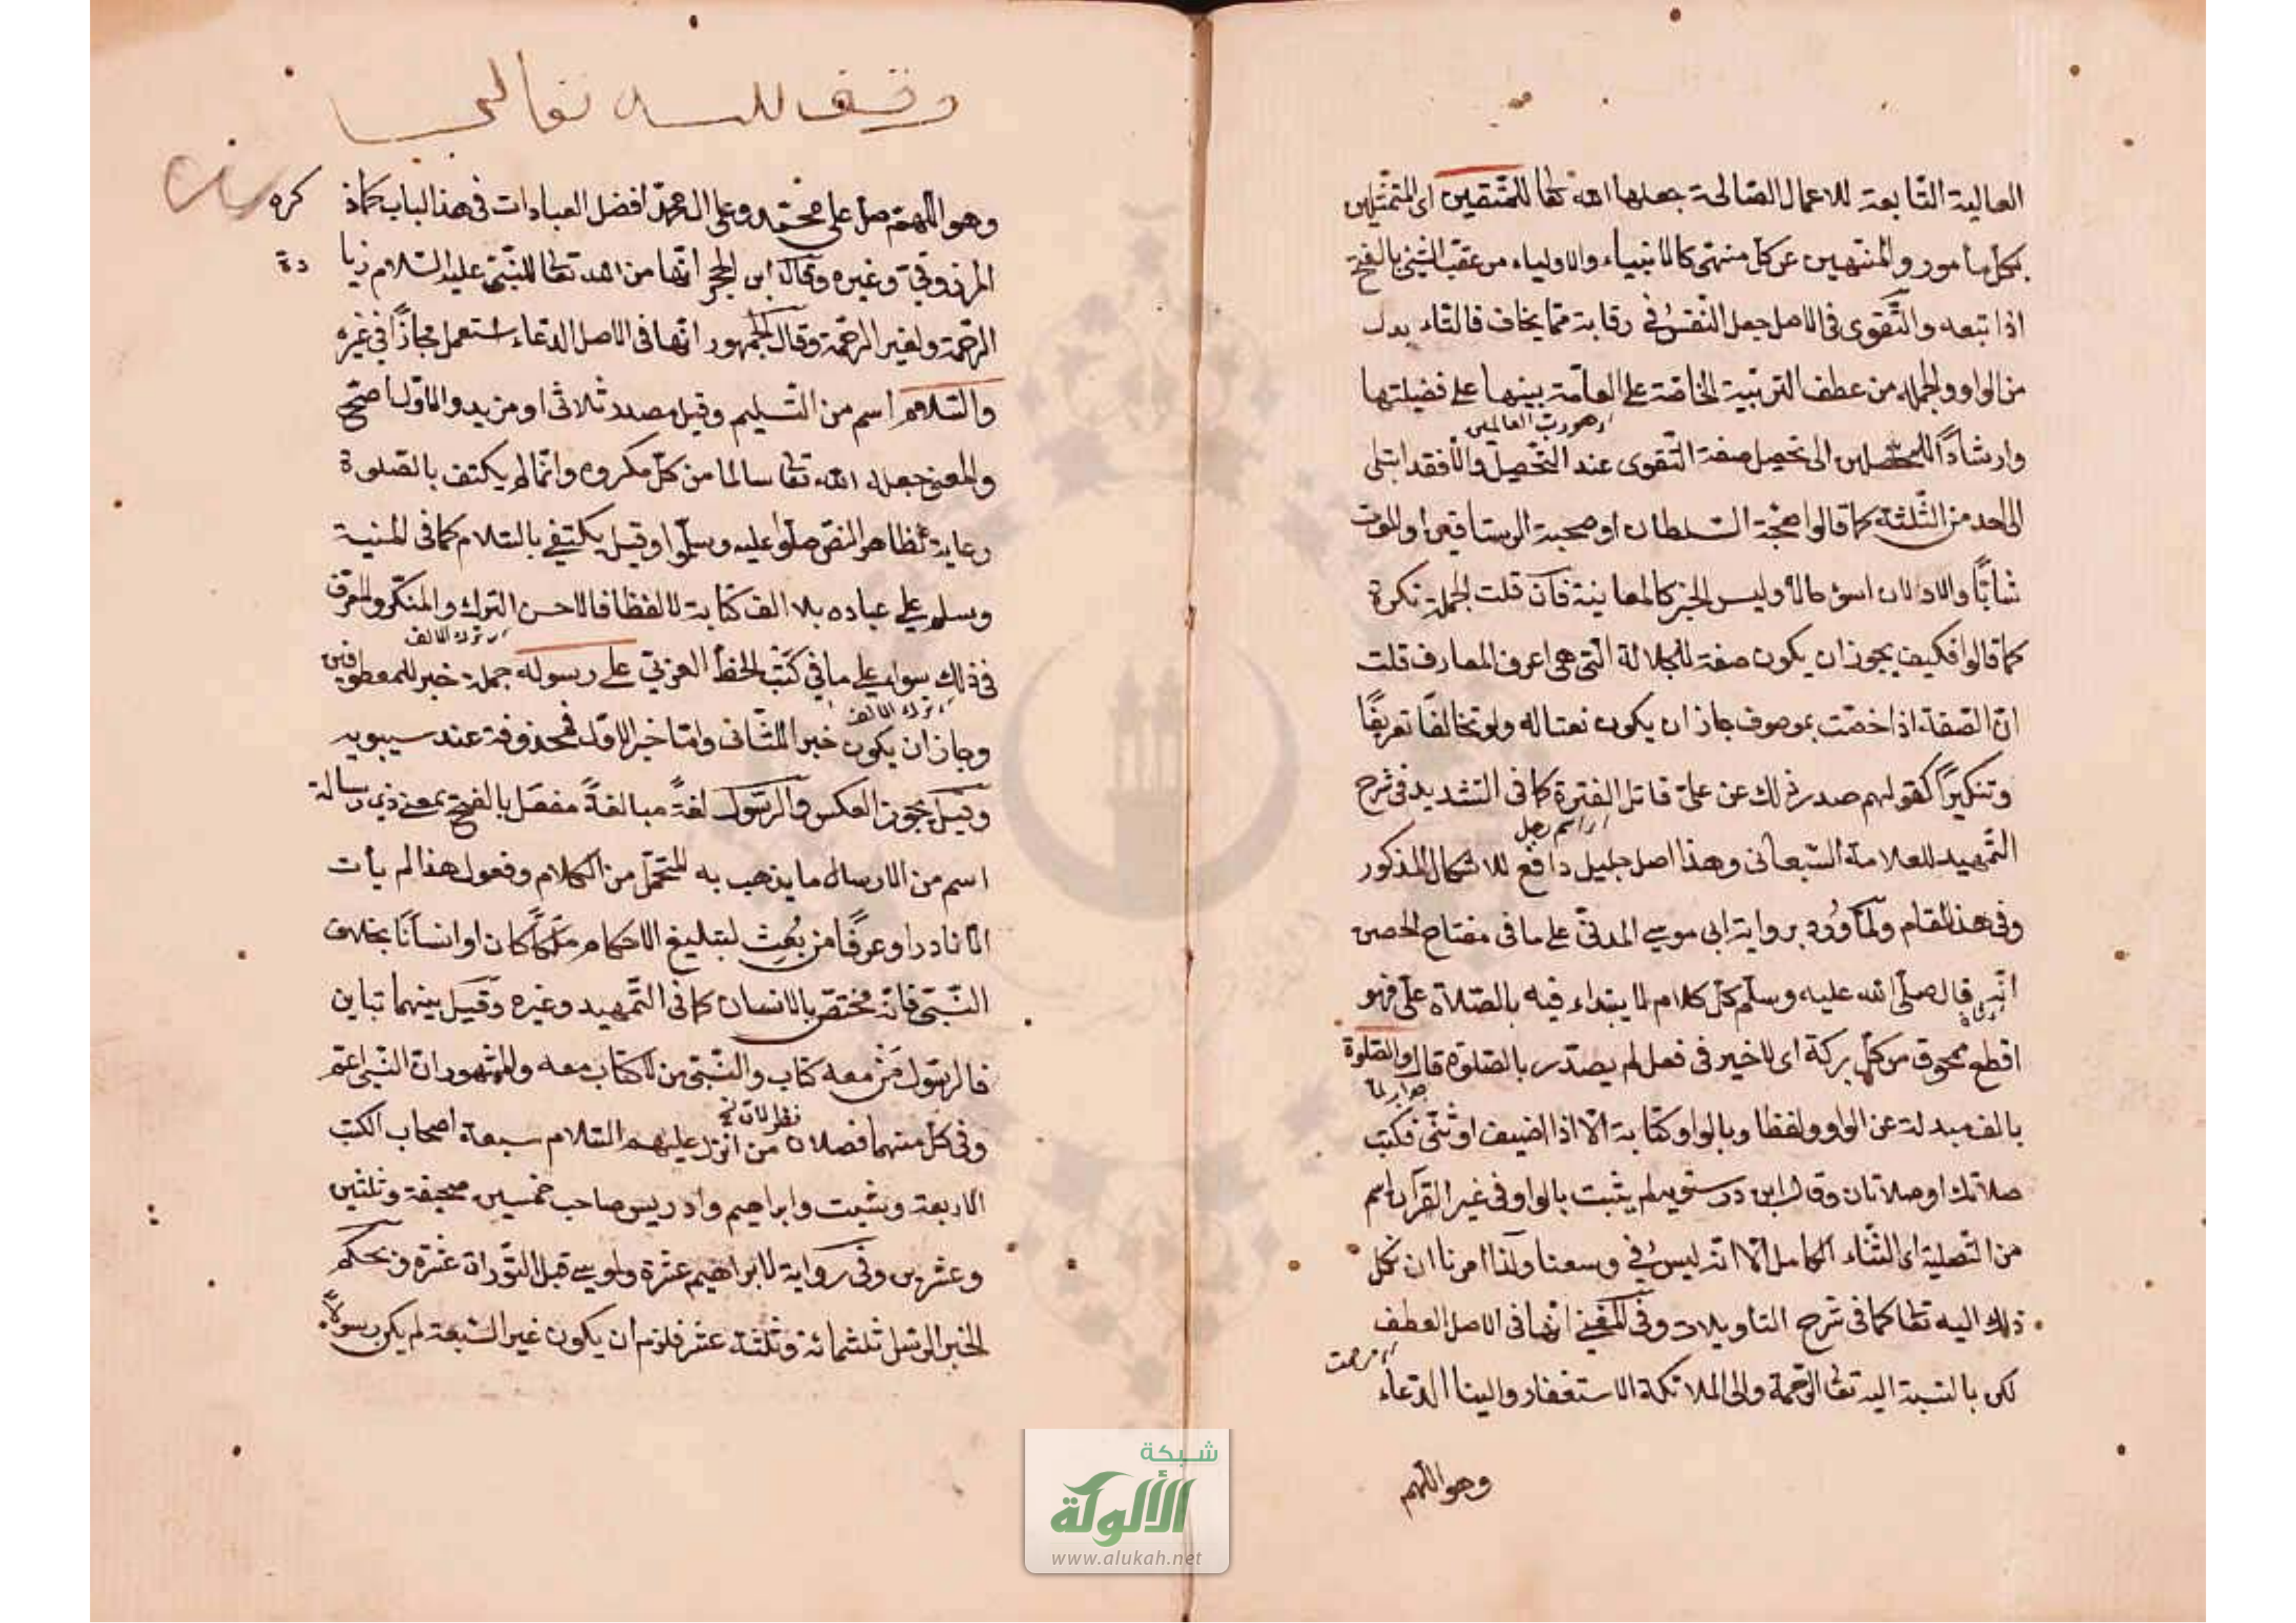 العالية التابعة للاعمال الصالحة جعلها الله تعا للمتقين اى المتمثلين
بكل مأمور والمنتهين عن كل منتهى كالانبياء والاولياء من عقب الشئ بالفتح
اذا تبعه والتقوى فى الاصل جعل النفس فى وقاية مما يخاف فالتاء بدل
من الواو والجملة من عطف التربية الخاصة على العامة بينها على فضيلتها
اى هو رب العالمين
وارشادًا للمحصلين الى تحصيل صفة التقوى عند التحصيل والا فقد ابتلى
الواحد من الثلثة كما قالوا صحبة السلطان او صحبة الرستاقى او الموت
شابًّا والاولان اسوء حالا وليس الخبر كالمعاينة فان قلت الجملة نكرة
كما قالوا فكيف يجوز ان يكون صفة للجلالة التى هى اعرف المعارف قلت
ان الصفة اذا خصّت بموصوف جاز ان يكون نعتا له ولو تخالفا تعريفًا
وتنكيرًا كقولهم صدر ذلك عن على قاتل الفترة كما فى التشديد فى شرح
اى اسم رجل
التمهيد للعلامة السبعانى وهذا اصل جليل دافع للاشكال المذكور
وفى هذا المقام ولما ورد برواية ابى موسى المدنى على ما فى مفتاح الحصن
انه قال صلى الله عليه وسلم كل كلام لا يبتداء فيه بالصلاة علىّ فهو
اقطع ممحوق من كل بركة اى لا خير فى فعل لم يصدّر بالصلوة قال والصلوة
جواب لما
بالف مبدلة عن الواو ولفظا وبالواو كتابة الا اذا اضيف او ثنّى فكتب
صلاتك او صلاتان وقال ابن درستويه لم يثبت بالواو فى غير القرآن اسم
من التصلية اى الثناء الكامل الا انه ليس فى وسعنا ولذا امرنا ان نكل
ذلك اليه تعا كما فى شرح التأويلات وفى المغنى انها فى الاصل العطف
لكن بالنسبة اليه تعا الرحمة والى الملائكة الاستغفار والينا الدعاء
وهو اللهم
وقف لله تعالى
وهو اللهم صل على محمد وعلى ال محمد افضل العبادات فى هذا الباب كما ذكره
المرزوقى وغيره وقال ابن الحجر انها من الله تعا للنبى عليه السلام زيادة
الرحمة ولغير الرحمة وقال الجمهور انها فى الاصل الدعاء استعمل مجازًا فى غيره
والسلام اسم من التسليم وقيل مصدر ثلاثى او مزيد والاول اصح
والمعنى جعله الله تعا سالما من كل مكروه وانما لم يكتف بالصلوة
رعاية لظاهر النص صلوا عليه وسلموا وقيل يكتفى بالسلام كما فى المنية
وسلم على عباده بلا الف كتابة لا لفظا فالاحسن الترك والمنكّر والمعرّف
اى ترك الالف
فى ذلك سواء على ما فى كتب الخط العربى على رسوله جملة خبر للمعطوفين
اى ترك الالف
وجاز ان يكون خبر الثانى واما خبر الاول فمحذوفة عند سيبويه
وقيل يجوز العكس والرسول لغةً مبالغةً مفعل بالفتح بمعنى ذى رسالة
اسم من الارسال ما يذهب به المتحمل من الكلام وفعول هذا لم يأت
الا نادرا وعرفًا من بُعِث لتبليغ الاحكام ملكًا كان او انسانًا بخلاف
النبى فانه مختص بالانسان كما فى التمهيد وغيره وقيل بينهما تباين
فالرسول من معه كتاب والنبى من لا كتاب معه والمشهور ان النبى اعم
وفى كل منهما فصلان من انزل عليهم السلام سبعة اصحاب الكتب
الاربعة وشيت وابراهيم وادريس صاحب خمسين صحيفة وثلثين
وعشرين وفى رواية لابراهيم عشرة ولموسى قبل التوراة عشرة وبحكم
الخبر الرسل ثلثمائة وثلثة عشر فلزم ان يكون غير السبعة لم يكن رسولًا
شبكة
الألوكة
www.alukah.net